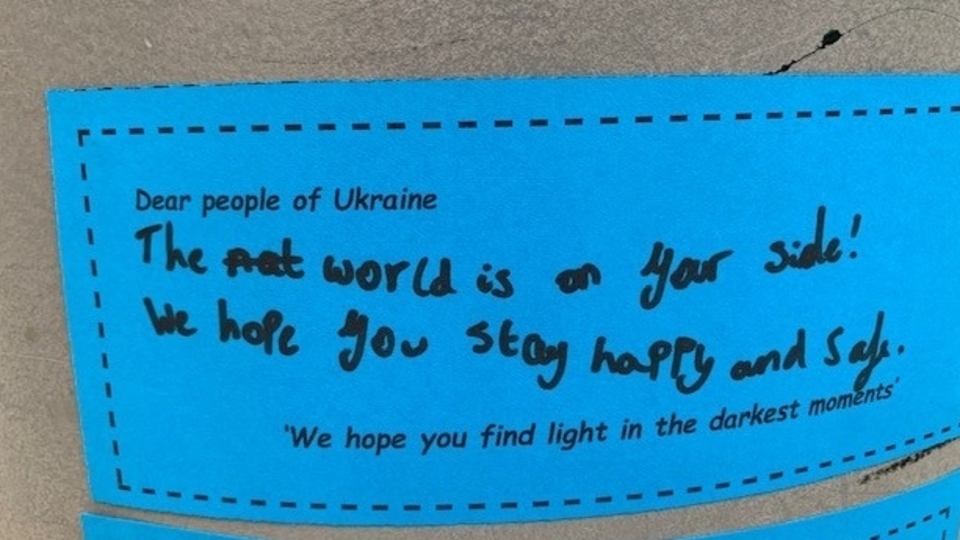 Dear people of Ukraine
The world is on your side!
We hope you stay happy and safe.
'We hope you find light in the darkest moments'